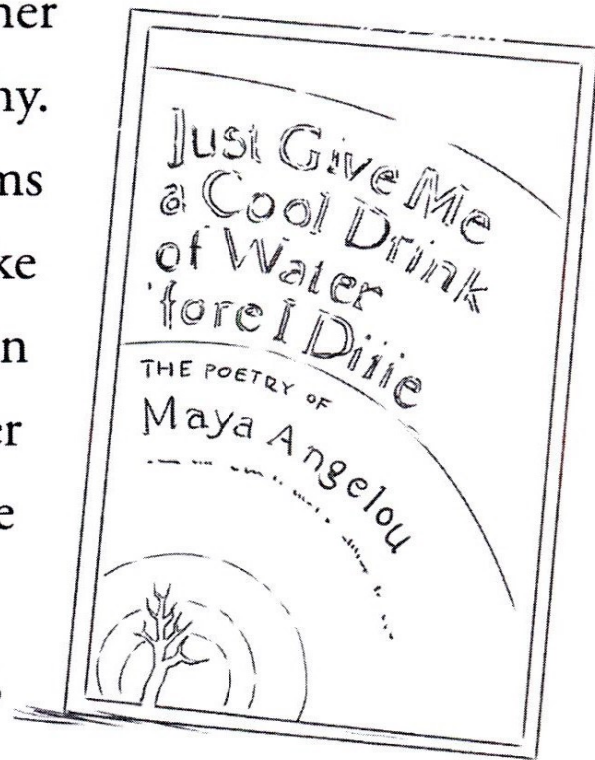 Just Give Me
a Cool Drink
of Water
'fore I Diiie
THE POETRY OF
Maya Angelou